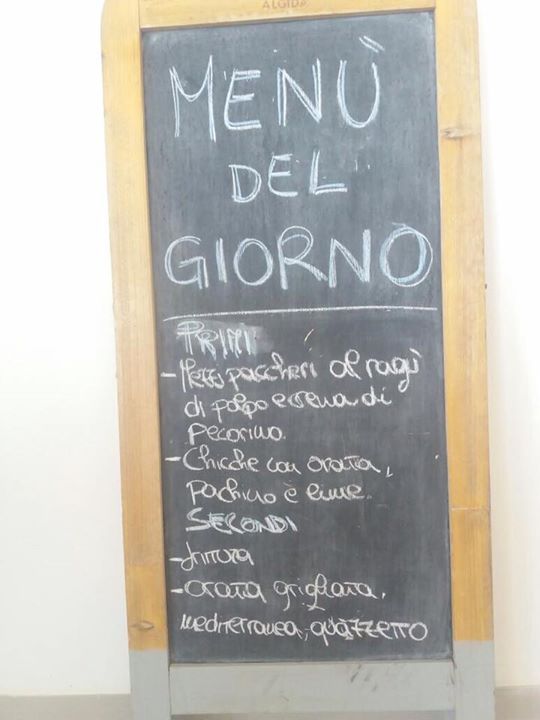 ALGIDA
MENÙ
DEL
GIORNO
PRIMI
- Mezzi paccheri al ragù
di polpo e crema di
pecorino.
- Chicche con orata,
pachino e
SECONDI
- frittura
- orata grigliata,
mediterranea, guazzetto